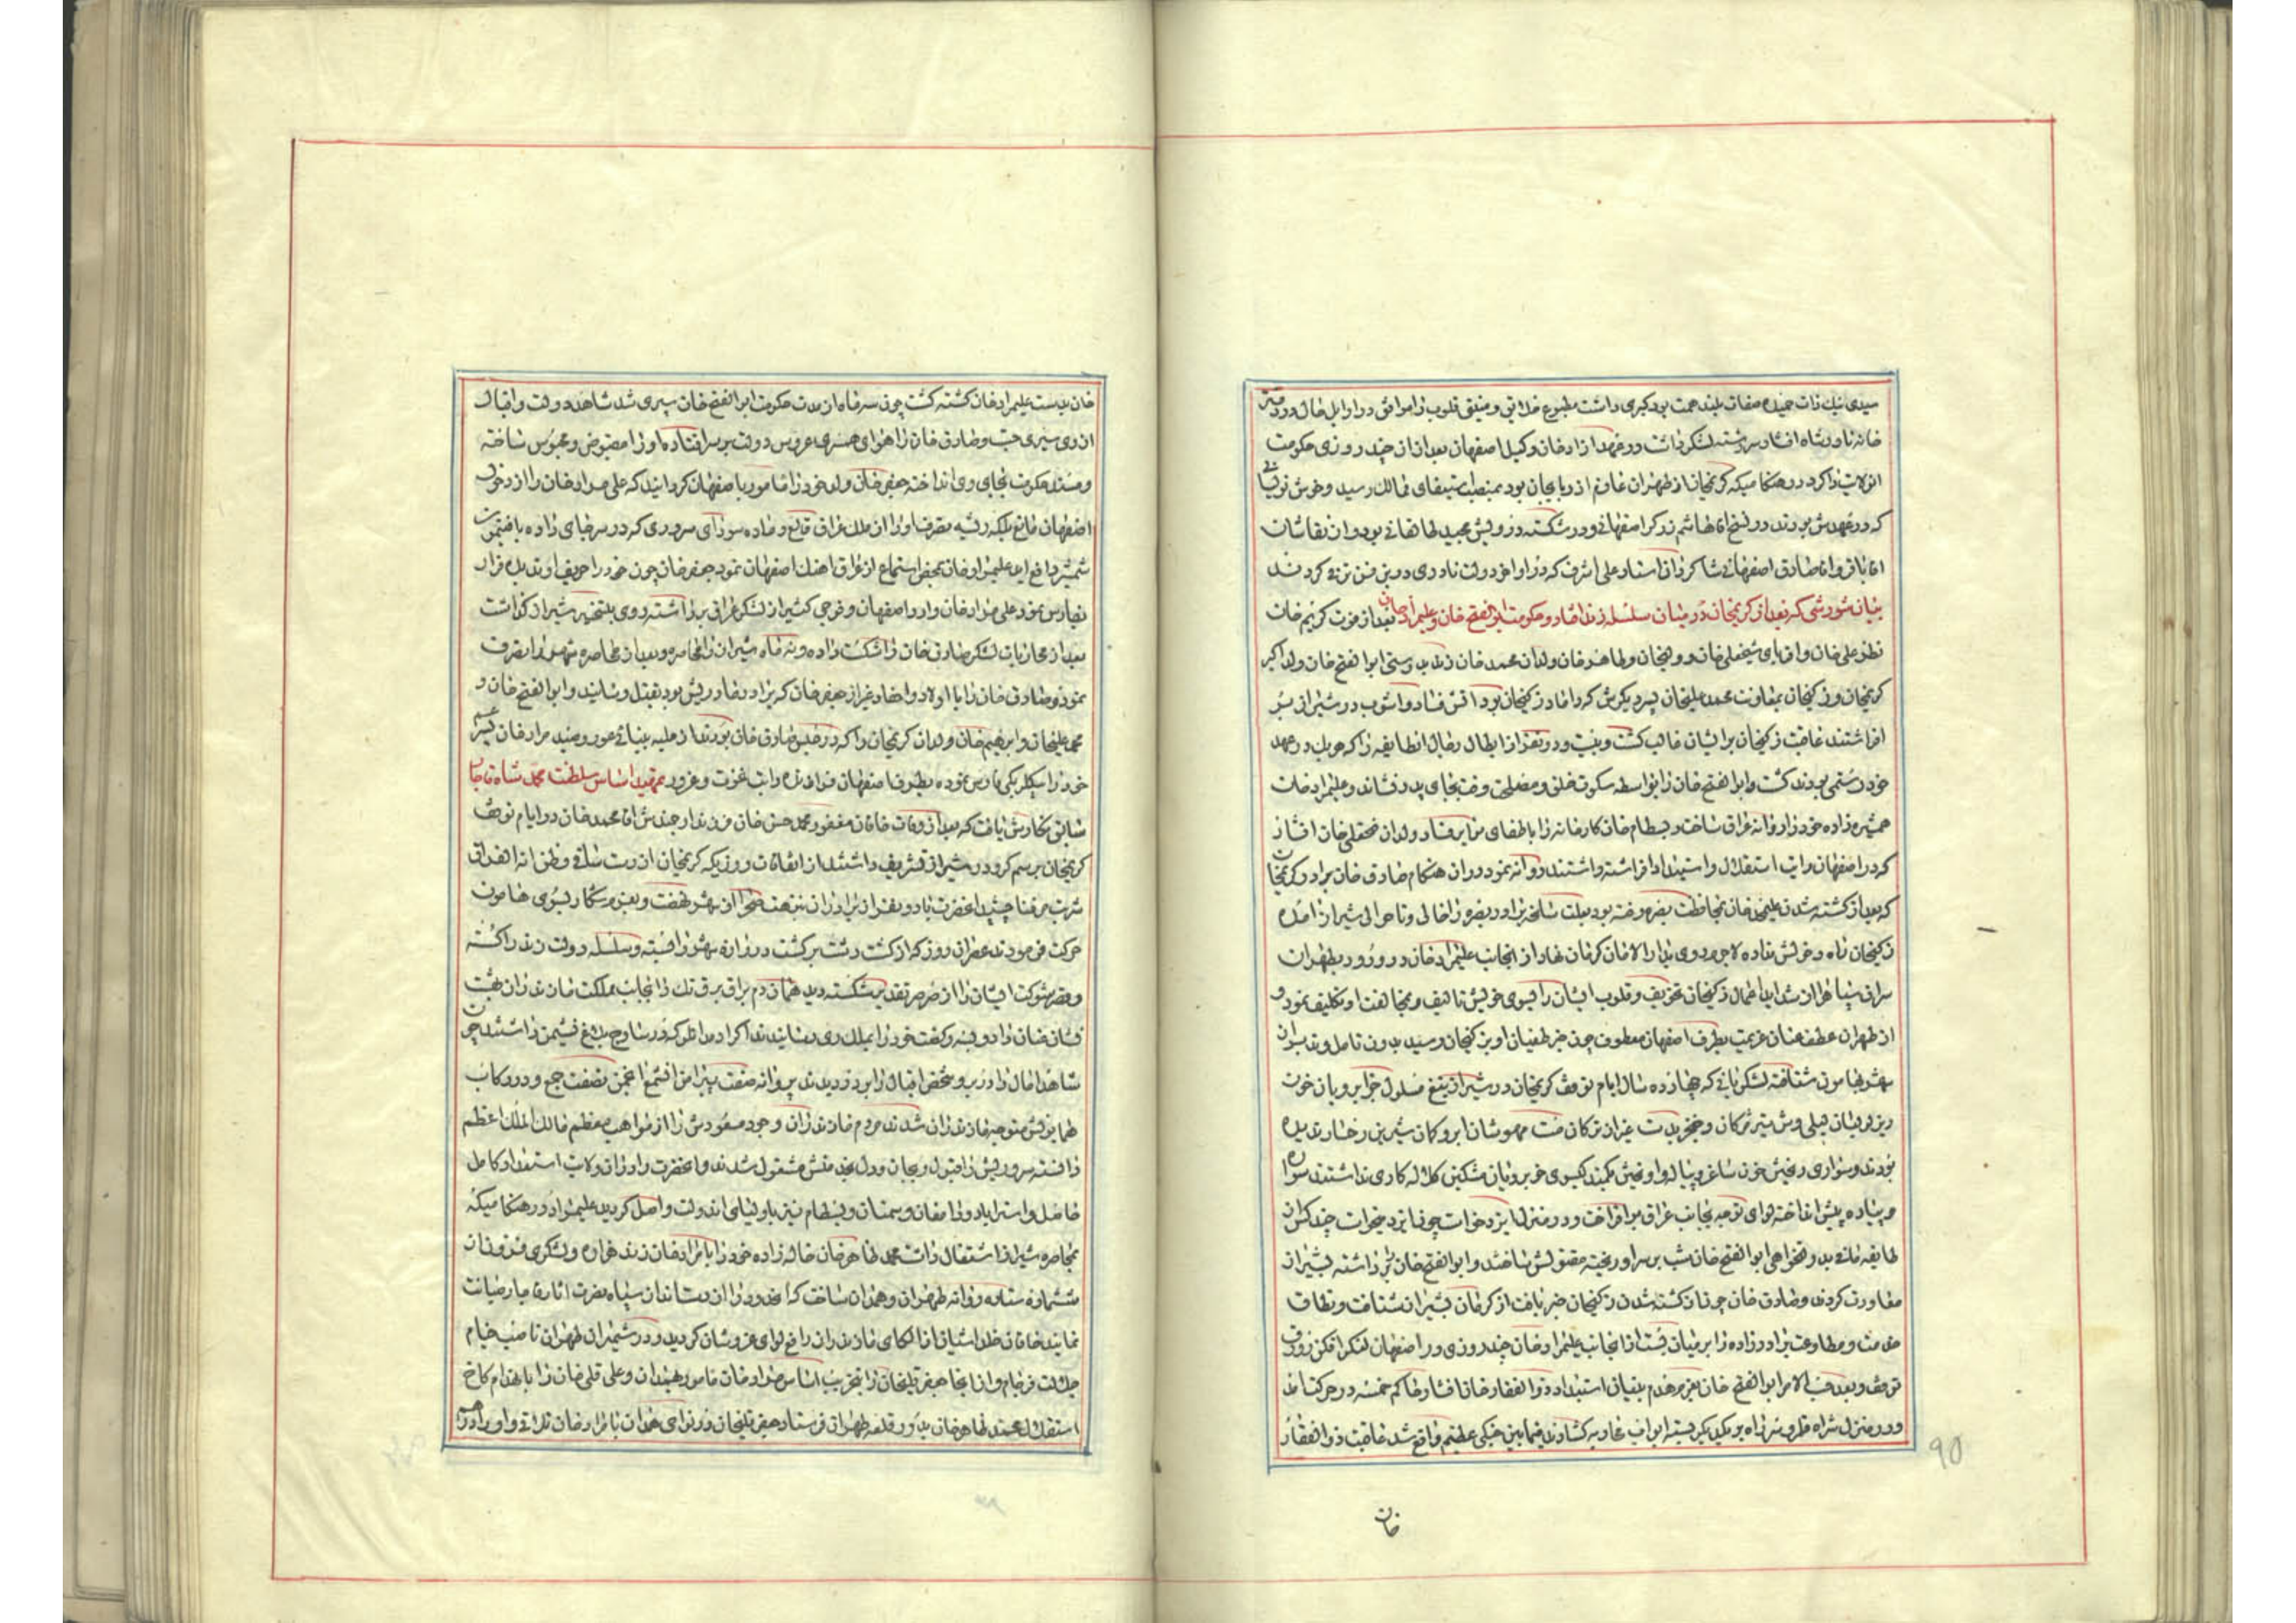 سیدی نیک ذات حمیده صفات بلند همت بود کبری داشت مطبوع خلایق و منیق قلوب را موافق در اوایل حال در دفتر
خانه نادرشاه افشار سررشته لشکر داشت و در عهد ازادخان وکیل اصفهان بعد از ان چند روزی حکومت
انولایت را کرد در هنگامیکه کریمخان از طهران عازم اذربایجان بود بمنصب استیفای ممالک رسید و خوش نویسانی
که در عهدش بودند در نسخ اقا هاشم زرگر اصفهانی و در شکسته درویش مجید طالقانی بود و از نقاشان
اقا باقر و اقا صادق اصفهانی شاگردان استاد علی اشرف که در اواخر دولت نادری در این فن ترقی کردند
بیان شورشی که بعد از کریمخان در میان سلسله زند افتاد و حکومت ابوالفتح خان و علیمرادخان بعد از فوت کریم خان
نظر علی خان و اقربای شیخعلی خان و ولیخان و طاهر خان ولدان محمد خان زند بدوستی ابوالفتح خان ولد اکبر
کریمخان و زکیخان بمعاونت محمد علیخان پسر دیگرش که داماد زکیخان بود اتش فساد و اشوب در شیراز بر
افراشتند عاقبت زکیخان بر ایشان غالب گشت و بیست و دو نفر از ابطال رجال انطایفه را که هر یک در عهد
خود رستمی بودند کشت و ابوالفتح خان را بواسطه سکوت خلق و مصلحت وقت بجای پدر نشاند و علیمراد خان
همشیره زاده خود را روانه عراق ساخت و بسطام خان کارخانه را باطفای نایره فساد ولدان فتحعلی خان افشار
که در اصفهان رایت استقلال و استبداد افراشته داشتند روانه نمود در ان هنگام صادق خان برادر کریمخان
که بعد از کشته شدن علیمحمد خان بمحافظت بصره رفته بود بعلت سانحه برادر بصره را خالی و تا حوالی شیراز امده
زکیخان راه دخولش نداده لاجرم روی بدار الامان کرمان نهاد از انجانب علیمراد خان در ورود بطهران
سران سپاه را از شداید اعمال زکیخان تخویف و قلوب ایشان را بسوی خویش تالیف و بمخالفت او تکلیف نمود و
از طهران عطف عنان عزیمت بطرف اصفهان معطوف چون خبر طغیان او بزکیخان رسید بدون تامل و تدبیر از
شهر بهامون شتافته لشکریانی که چهارده سال ایام توقف کریمخان در شیراز بتیغ مسلول خوبرویان خون
ریز لولیان لیلی وش تیر مژگان و خنجر بدست غیر از ترکان مست مهوشان ابرو کمان شیرین رخسار ندیده
بودند و سوای ریختن خون ساغر و پیاله و اویختن بکمند گیسوی خوبرویان مشکین کلاله کاری نداشتند سواره
و پیاده پیش انداخته لوای توجه بجانب عراق بر افراخت و در منزل ایزدخواست چون ایزد میخواست چند کس از ان
طایفه مافی بدولتخواهی ابوالفتح خان شب بر سر او ریخته مقتولش ساختند و ابوالفتح خان را برداشته بشیراز
معاودت کردند و صادق خان چون از کشته شدن زکیخان خبر یافت از کرمان بشیراز شتافت و نطاق
خدمت و مطاوعت برادر زاده را بر میان بست از انجانب علیمراد خان چند روزی در اصفهان لنگر افکن زورق
توقف و بعد حسب الامر ابوالفتح خان بعزم هدم بنیان استبداد ذوالفقار خان افشار حاکم خمسه در حرکت امد
و در منزل شراه قلرو سر راه بر یکدیگر بسته ابواب محاربه گشادند فیمابین جنگی عظیم واقع شد عاقبت ذوالفقار
خان
خان بدست علیمراد خان کشته گشت چون سه ماه از مدت حکومت ابوالفتح خان سپری شد شاهد دولت و اقبال
از وی سیری جست و صادق خان را هوای همسری عروس دولت بر سر افتاد و او را مقبوض و محبوس ساخته
و مسند حکومت بجای وی انداخته جعفر خان ولد خود را مامور باصفهان گردانید که علی مراد خان را از دخول
اصفهان مانع بلکه ریشه تصرف او را از ملک عراق قالع و ماده سودای سروری که در سر جای داده بافتیمون
شمشیر دافع اید علیمراد خان بمحض استماع از عراق اهنگ اصفهان نمود جعفر خان چون خود را حریف او ندید فرار
بفارس نمود علی مراد خان وارد اصفهان و فوجی کثیر از لشکر عراق برداشته روی بتسخیر شیراز گذاشت
بعد از محاربات لشکر صادق خان را شکست داده و نه ماه شیراز را محاصره و بعد از محاصره شهر را بتصرف
نمود و صادق خان را با اولاد و احفاد غیر از جعفر خان که برادر مادریش بود بقتل رسانید و ابوالفتح خان و
محمد علیخان و ابرهیم خان ولدان کریمخان را که در حبس صادق خان بودند از حلیه بینائی عور و صید مراد خان پسر عم
خود را بیگلربیگی فارس نموده بطرف اصفهان فرازنده رایت عزت و غرور تمهید اساس سلطنت محمد شاه قاجار
سابق نگارش یافت که بعد از وفات خاقان مغفور محمد حسن خان فرزند ارجمندش اقا محمد خان در ایام توقف
کریمخان برسم گرو در شیراز تشریف داشتند از اتفاقات روزیکه کریمخان از دست ساقی و ظن انه الفراق
شربت مرگ چشید انحضرت با دو نفر از برادران بتنهنه صحرا از شهر نهضت و بعزم شکار بسوی هامون
حرکت فرمودند عصر ان روز که از گشت دشت برگشت دروازه شهر را بسته و سلسله دولت زند را گسسته
و قصر شوکت ایشان را از صرصر تقدیر شکسته دید همان دم براق برق تک را بجانب مملکت مازندران بهشت
نشان عنان داده و بنه و کفت خود را بملک ری رسانیدند اکراد مدانلو که در ساوجبلاغ نشیمن داشتند چون
شاهد امال را در بر و شخص اقبال را بر در دیدند پروانه صفت پیرامن انشمع انجمن نصفت جمع و در رکاب
همایونش متوجه مازندران شدند مردم مازندران وجود مسعودش را از مواهب معظم مالک الملک اعظم
دانسته سروریش را قبول و بجان و دل بخدمتش مشغول شدند و انحضرت را در ان ولایت استعداد کامل
حاصل و استراباد و دامغان و سمنان و بسطام نیز باولیای اندولت واصل گردید علیمراد در هنگامیکه
بمحاصره شیراز اشتغال داشت محمد طاهر خان خاله زاده خود را با مراد خان زند هزاره و لشکری فزون از
ششماره ستاره روانه طهران و همدان ساخت که انحدود را از دستانداز سپاه نصرت اثار قاجار صیانت
نمایند خاقان خلد اشیان از الکای مازندران رافع لوای عز و شان گردید و در شمیران طهران ناصب خیام
جلالت فرجام و از انجا جعفر قلیخان را بتخریب اساس مراد خان مامور همدان و علی قلی خان را بانهدام کاخ
استقلال محمد طاهر خان بدور قلعه طهران فرستاد جعفر قلیخان در نواحی همدان با مراد خان تلاقی و او را در